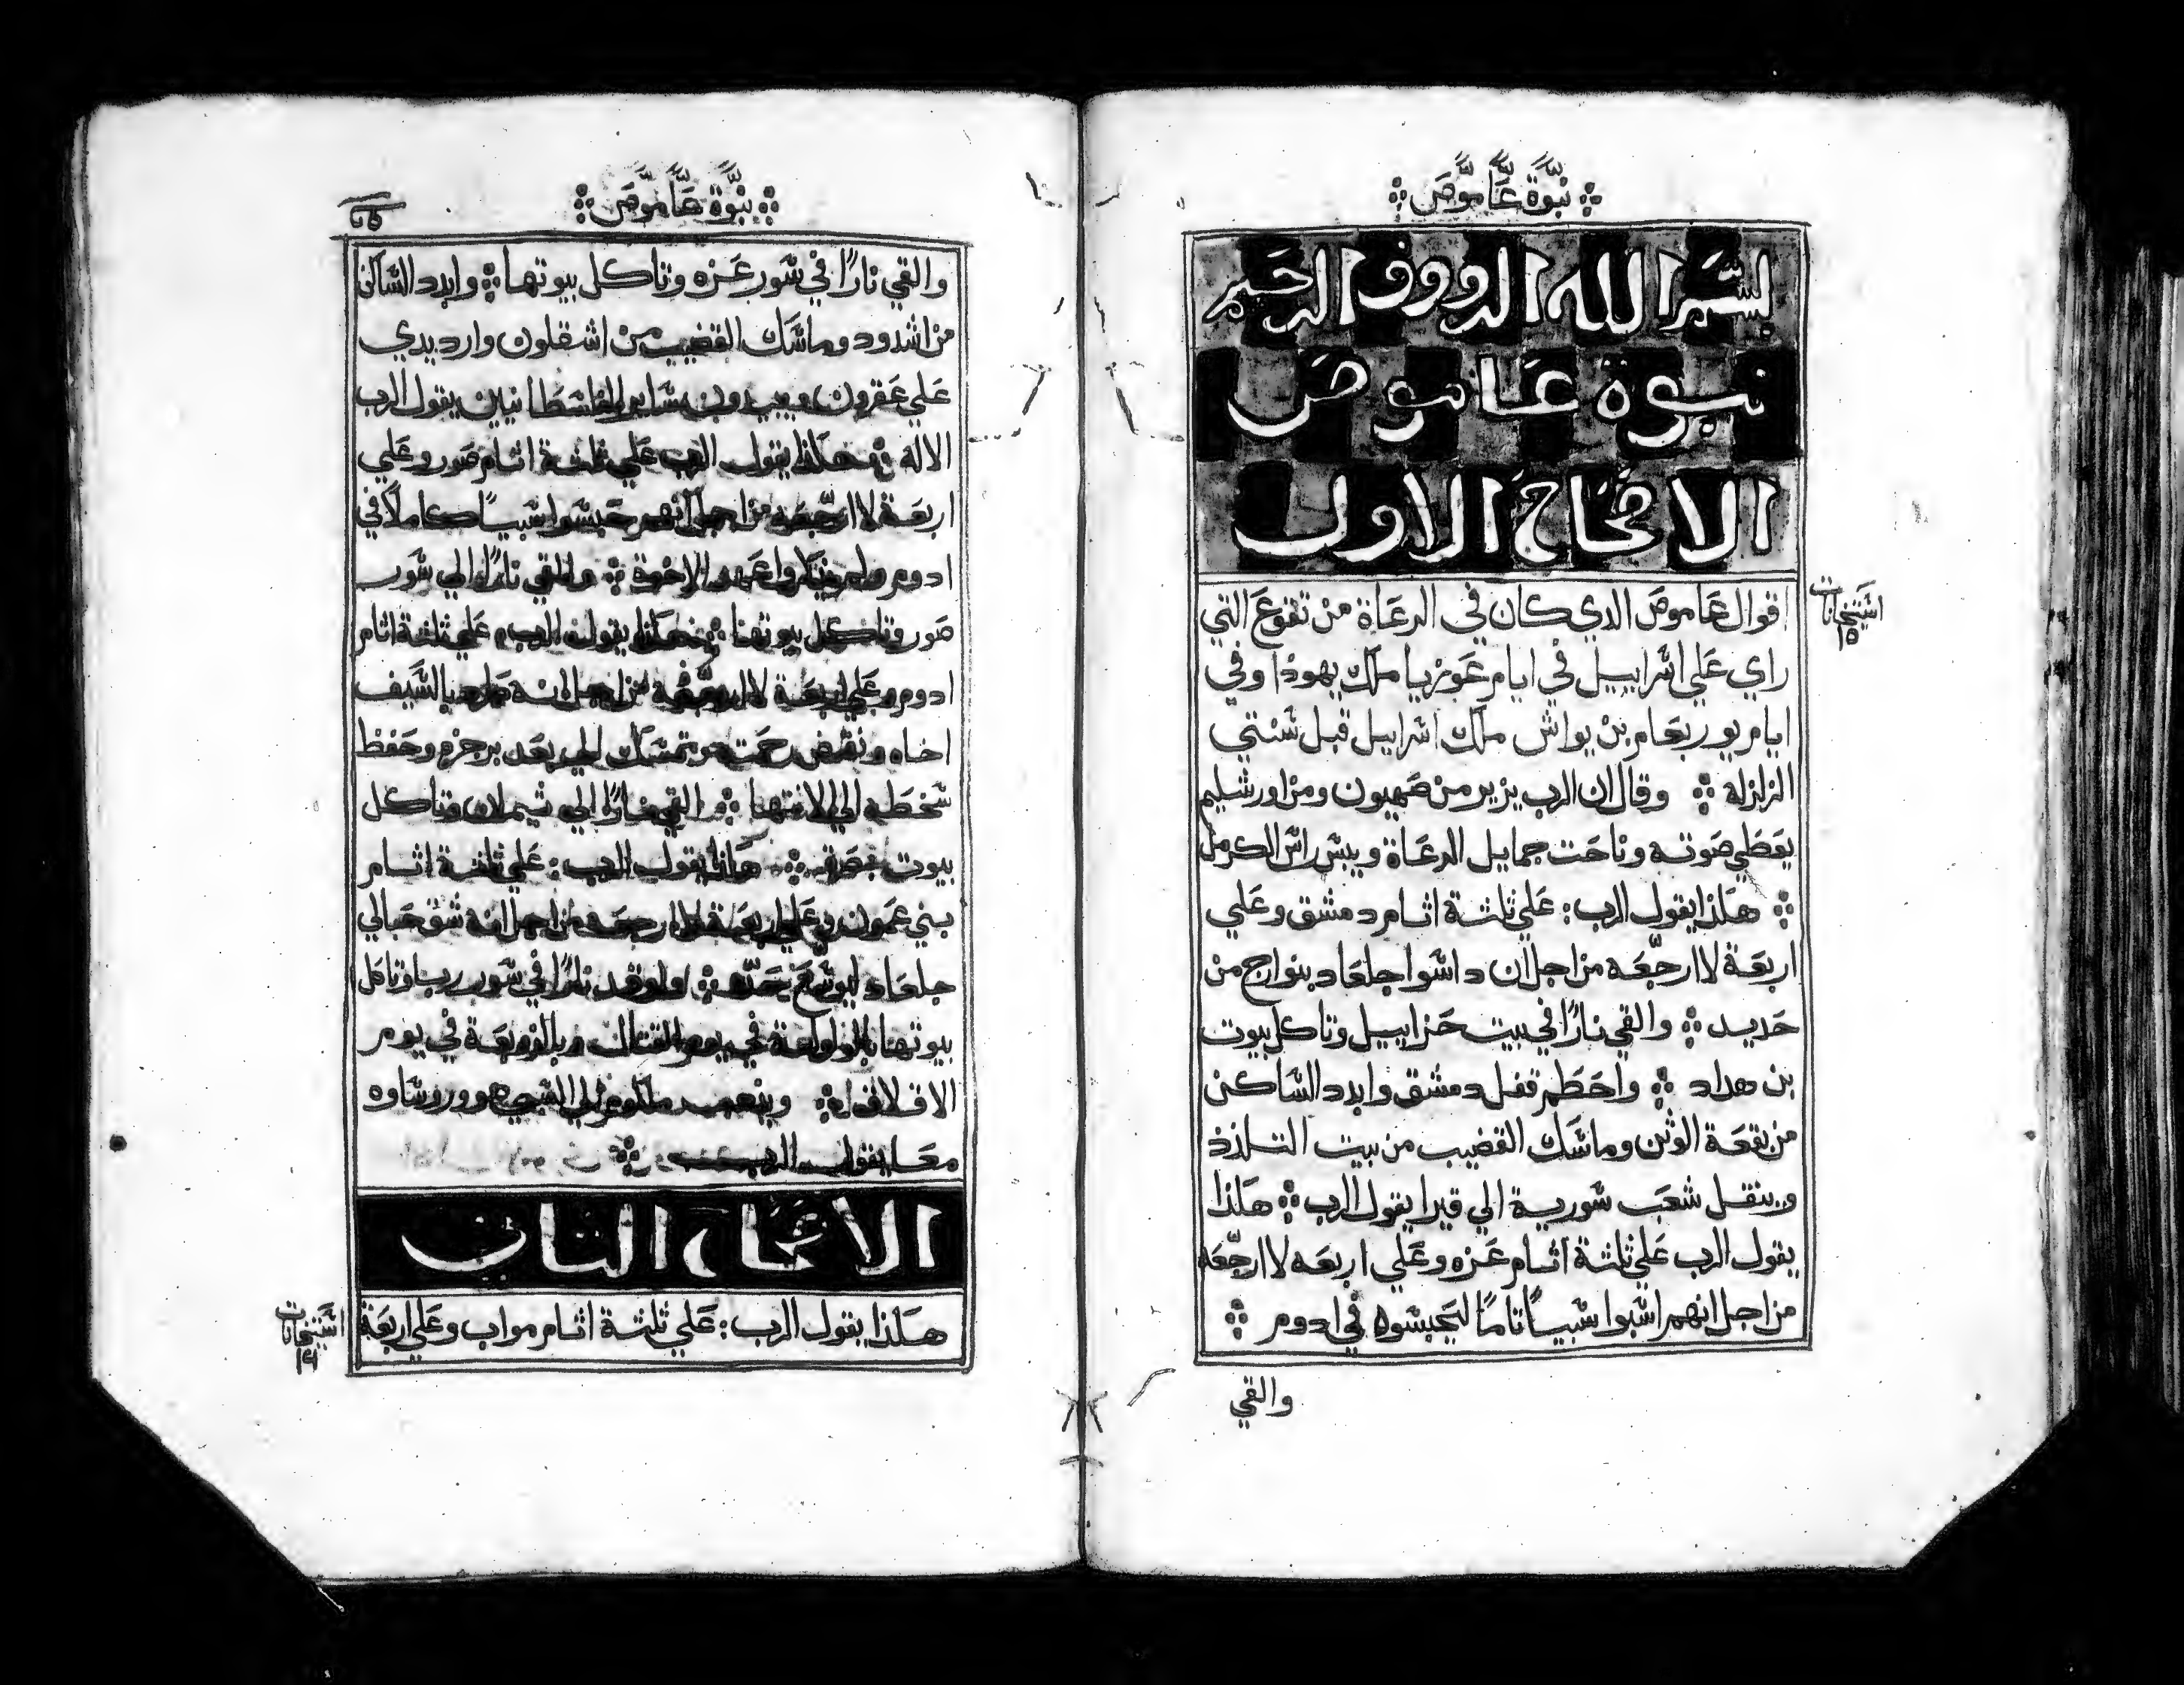 نبوة عاموص
بسم الله الرووف الرحيم
نبوة عاموص
الاصحاح الاول
اقوال عاموص الدي كان في الرعاة من تقوع التي
راي علي اسراييل في ايام عوزيا ملك يهوذا وفي
ايام يوربعام بن يواش ملك اسراييل قبل سنتي
الزلزلة وقال ان الرب يزير من صهيون ومن اورشليم
يعطي صوته وناحت جمايل الرعاة ويبس راس الكرمل
هكذا يقول الرب : علي ثلثة اثام دمشق وعلي
اربعة لا ارجعه من اجل ان داسوا جلعاد بنوارج من
حديد والقي نارًا في بيت حزاييل وتاكل بيوت
بن هداد واحطم قفل دمشق وابدد الساكن
من بقعة الوثن وماسك القضيب من بيت التلذذ
وينقل شعب سورية الي قيرا يقول الرب هكذا
يقول الرب علي ثلثة اثام غزه وعلي اربعه لا ارجعه
من اجل انهم اسبوا سبيًا تامًا ليحبسوه في ادوم
والقي
اشتخانات
١٥
نبوة عاموص
والقي نارًا في سور غزه وتاكل بيوتها وابدد الساكن
من اشدود وماسك القضيب من اشقلون وارد يدي
علي عقرون ويبيدون ساير الفلسطانيين يقول الرب
الاله هكذا يقول الرب علي ثلثة اثام صور وعلي
اربعة لا ارجعه من اجل انهم حبسوا سبيًا كاملًا في
ادوم ولم يذكروا عهد الاخوة والقي نارًا الي سور
صور وتاكل بيوتها هكذا يقول الرب علي ثلثة اثام
ادوم وعلي اربعة لا ارجعه من اجل انه طرد بالسيف
اخاه ونقض رحمته وتمسك الي بعد برجزه وحفظ
سخطه الي الانتها والقي نارًا الي تيملان وتاكل
بيوت بصره هكذا يقول الرب : علي ثلثة اثام
بني عمون وعلي اربعة لا ارجعه من اجل انه شق حبالي
جلعاد ليوسع حده واوقد نارًا في سور ربا وتاكل
بيوتها بالولولة في يوم القتال وبالزوبعة في يوم
الاقلاقل ويذهب ملكوم الي السبي هو وروساوه
معا يقول الرب
الاصحاح الثاني
هكذا يقول الرب : علي ثلثة اثام مواب وعلي اربعة
اشتخانات